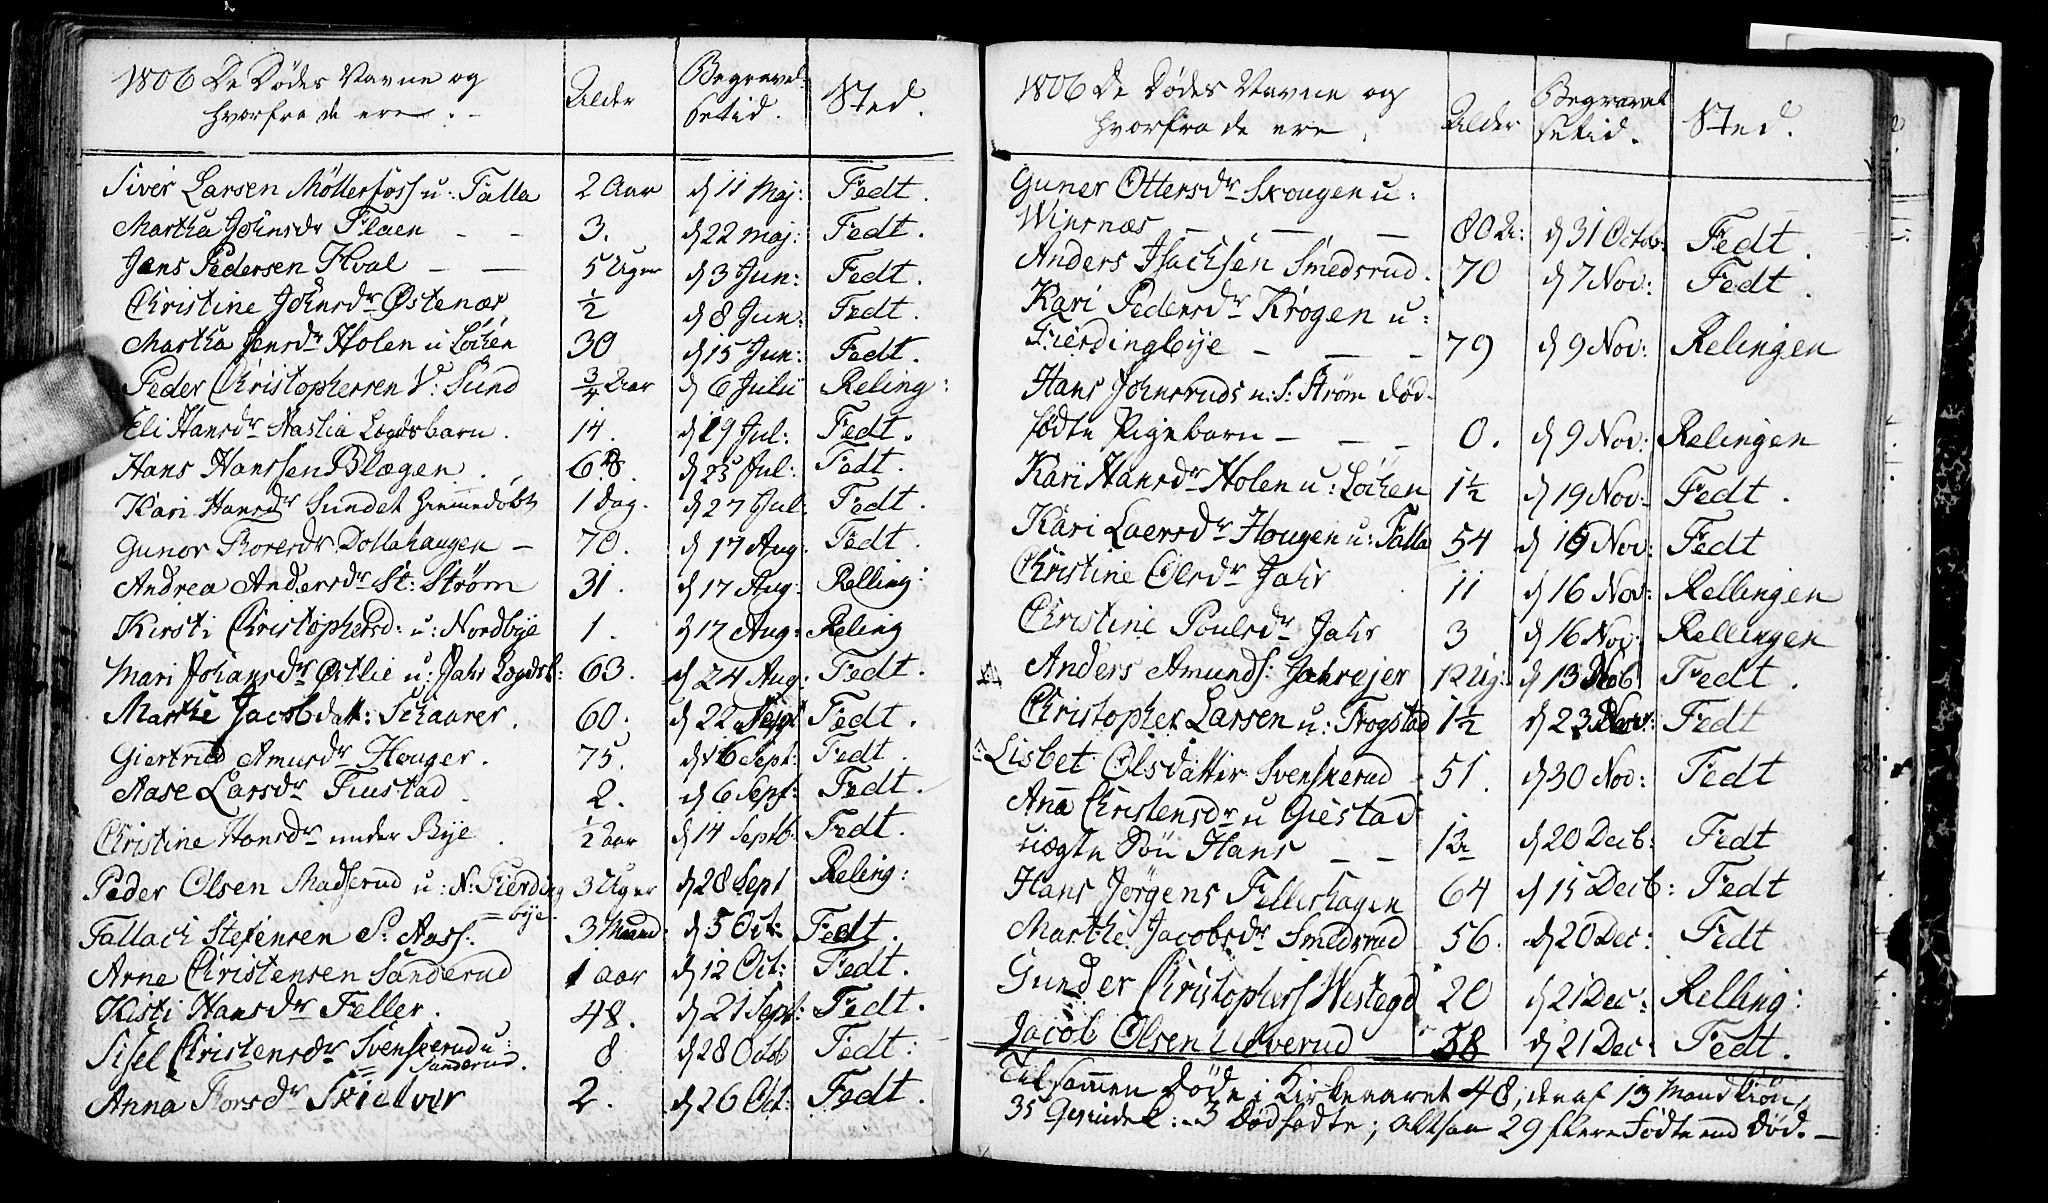 1806 De Dødes Navne og
hvorfra de ere. -
Alder
Begravel-
setid.
Sted.
Siver Larsen Møllerfoss u: Talla 2 Aar d 11 Maj: Fedt.
Martha Johnsdr Flaen - - 3. d 22 Maj: Fedt.
Jens Pedersen Hval - - 5 Uger d 3 Jun: Fedt.
Christine Johnsdr Østenæs ½ d 8 Jun: Fedt.
Martha Jensdr Holen u Løchen 30 d 15 Jun: Fedt.
Peder Christophersen V: Sund ¾ Aar d 6 Julii Reling:
Eli Hansdr Nastia Logdsbarn. 14. d 19 Jul: Fedt.
Hans Hanssen Blægen. 68. d 25 Jul: Fedt.
Kari Hansdr Sundet hiemmedøbt 1 Dag. d 27 Jul: Fedt.
Gunor Torersdr Dollahaugen - 70. d 17 Aug: Fedt.
Andrea Andersdr St: Strøm 31. d 17 Aug: Relling:
Kirsti Christophersd: u: Nordbye 1. d 17 Aug: Reling
Mari Johansdr Østlie u: Jahr Logdsb: 63. d 24 Aug: Fedt.
Marthe Jacobdatt: Schaarer. 60. d 22 Sept Fedt.
Giertrud Amundr Houger. 75. d 16 Sept: Fedt.
Aase Larsdr Tiustad 2. d 6 Sept: Fedt.
Christine Hansdr under Bye. ½ Aar d 14 Septb: Fedt.
Peder Olsen Madserud u: N: Fierding 3 Uger d 28 Sept Reling:
= bye.
Tallach Stefensen S: Aass: 3 Maaned: d 5 Oct: Fedt
Arne Christensen Sanderud 1 aar d 12 Oct: Fedt.
Kisti Hansdr Feller. 48. d 21 Sept: Fedt.
Sisel Christensdr Svenskerud u: 8 d 28 Octob Fedt:
= Sanderud.
Anna Torsdr Skielver 2. d 26 Oct: Fedt.
1806 De Dødes Navne og
hvorfra de ere.
Alder
Begravel
setid.
Sted.
Guner Ottersdr Skougen u:
Wiernæs - - - 80 A: d 31 Octob: Fedt.
Anders Isachsen Smedsrud. 70 d 7 Nov: Fedt.
Kari Pedersdr Krogen u:
Fierdingbye - - - 79 d 9 Nov: Relingen
Hans Johnsruds u: S: Strøm død-
fødte Pigebarn - - - 0. d 9 Nov: Relingen
Kari Hansdr Holen u: Løchen 1½ d 19 Nov: Fedt.
Kari Laersdr Hougen u: Talla 54 d 19 Nov: Fedt
Christine Olsdr Jahr 11 d 16 Nov: Rellingen
Christine Poulsdr Jahr 3 d 16 Nov: Rellingen
Anders Amunds: Jahrejer 12 Ug: d 13 Fedt.
Christopher Larsen u: Trogstad 1½ d 23 Nov: Fedt
Lisbet Olsdatter Svenskerud 51. d 30 Nov: Fedt
Ana Christensdr u Giestad
uægte Søn Hans - - d 20 Decb: Fedt
Hans Jørgens Felleshagen 64 d 15 Decb: Fedt
Marthe Jacobsdr Smedsrud 56. d 20 Dec: Fedt
Gunder Christophers Westegd 20 d 21 Dec: Relling:
Jacob Olsen Ud 38 d 21 Dec: Fedt.
Tilsammen Døde i Kirkeaaret 48, deraf 13 Mandkiøn,
35 Qvindek: 3 Dødfødte; altsaa 29 flere Fødte end Død. -